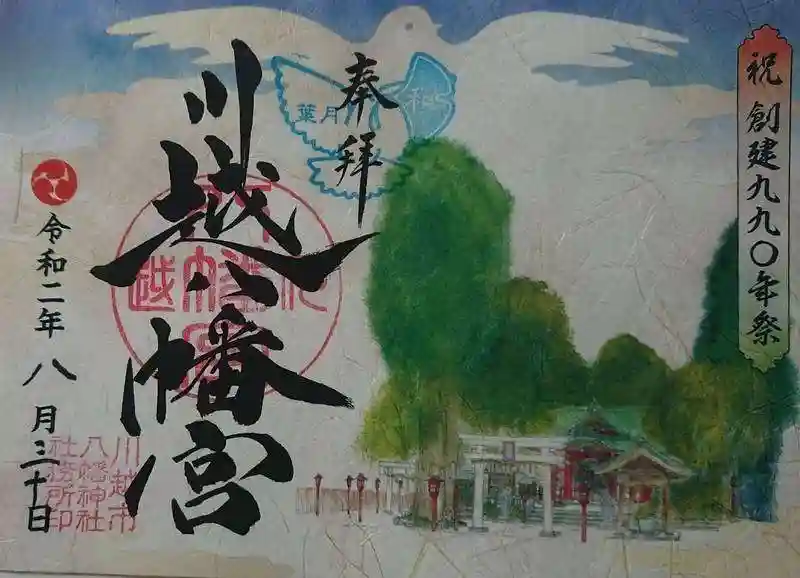 祝創建九九〇年祭
奉拝
葉月
川越八幡宮
令和二年八月三十日
川越市
八幡神社
社務所印